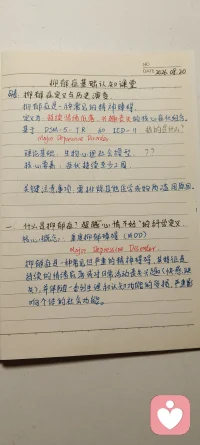 NO.
DATE 2026.08.20
抑郁症基础认知课堂
抑郁症定义与历史演变
抑郁症是一种常见的精神障碍
定义为 持续情绪低落、兴趣丧失的核心症状组合
基于 DSM-5-TR 和 ICD-11
Major Depressive Disorder
理论基础: 生物心理社会模型. ??
核心要素: 症状持续至少二周
关键注意事项: 需排除其他医学疾病的
一. 什么是抑郁症? 超越"心情不好"的科学定义.
核心概念: 重度抑郁障碍 (MDD)
Major Depressive Disorder
抑郁症是一种常见但严重的精神障碍, 其特征是
持续的情绪低落或对日常活动丧失兴趣(快感缺
失), 并伴随一系列生理和认知功能的变损, 严重影
响个体的社会功能。